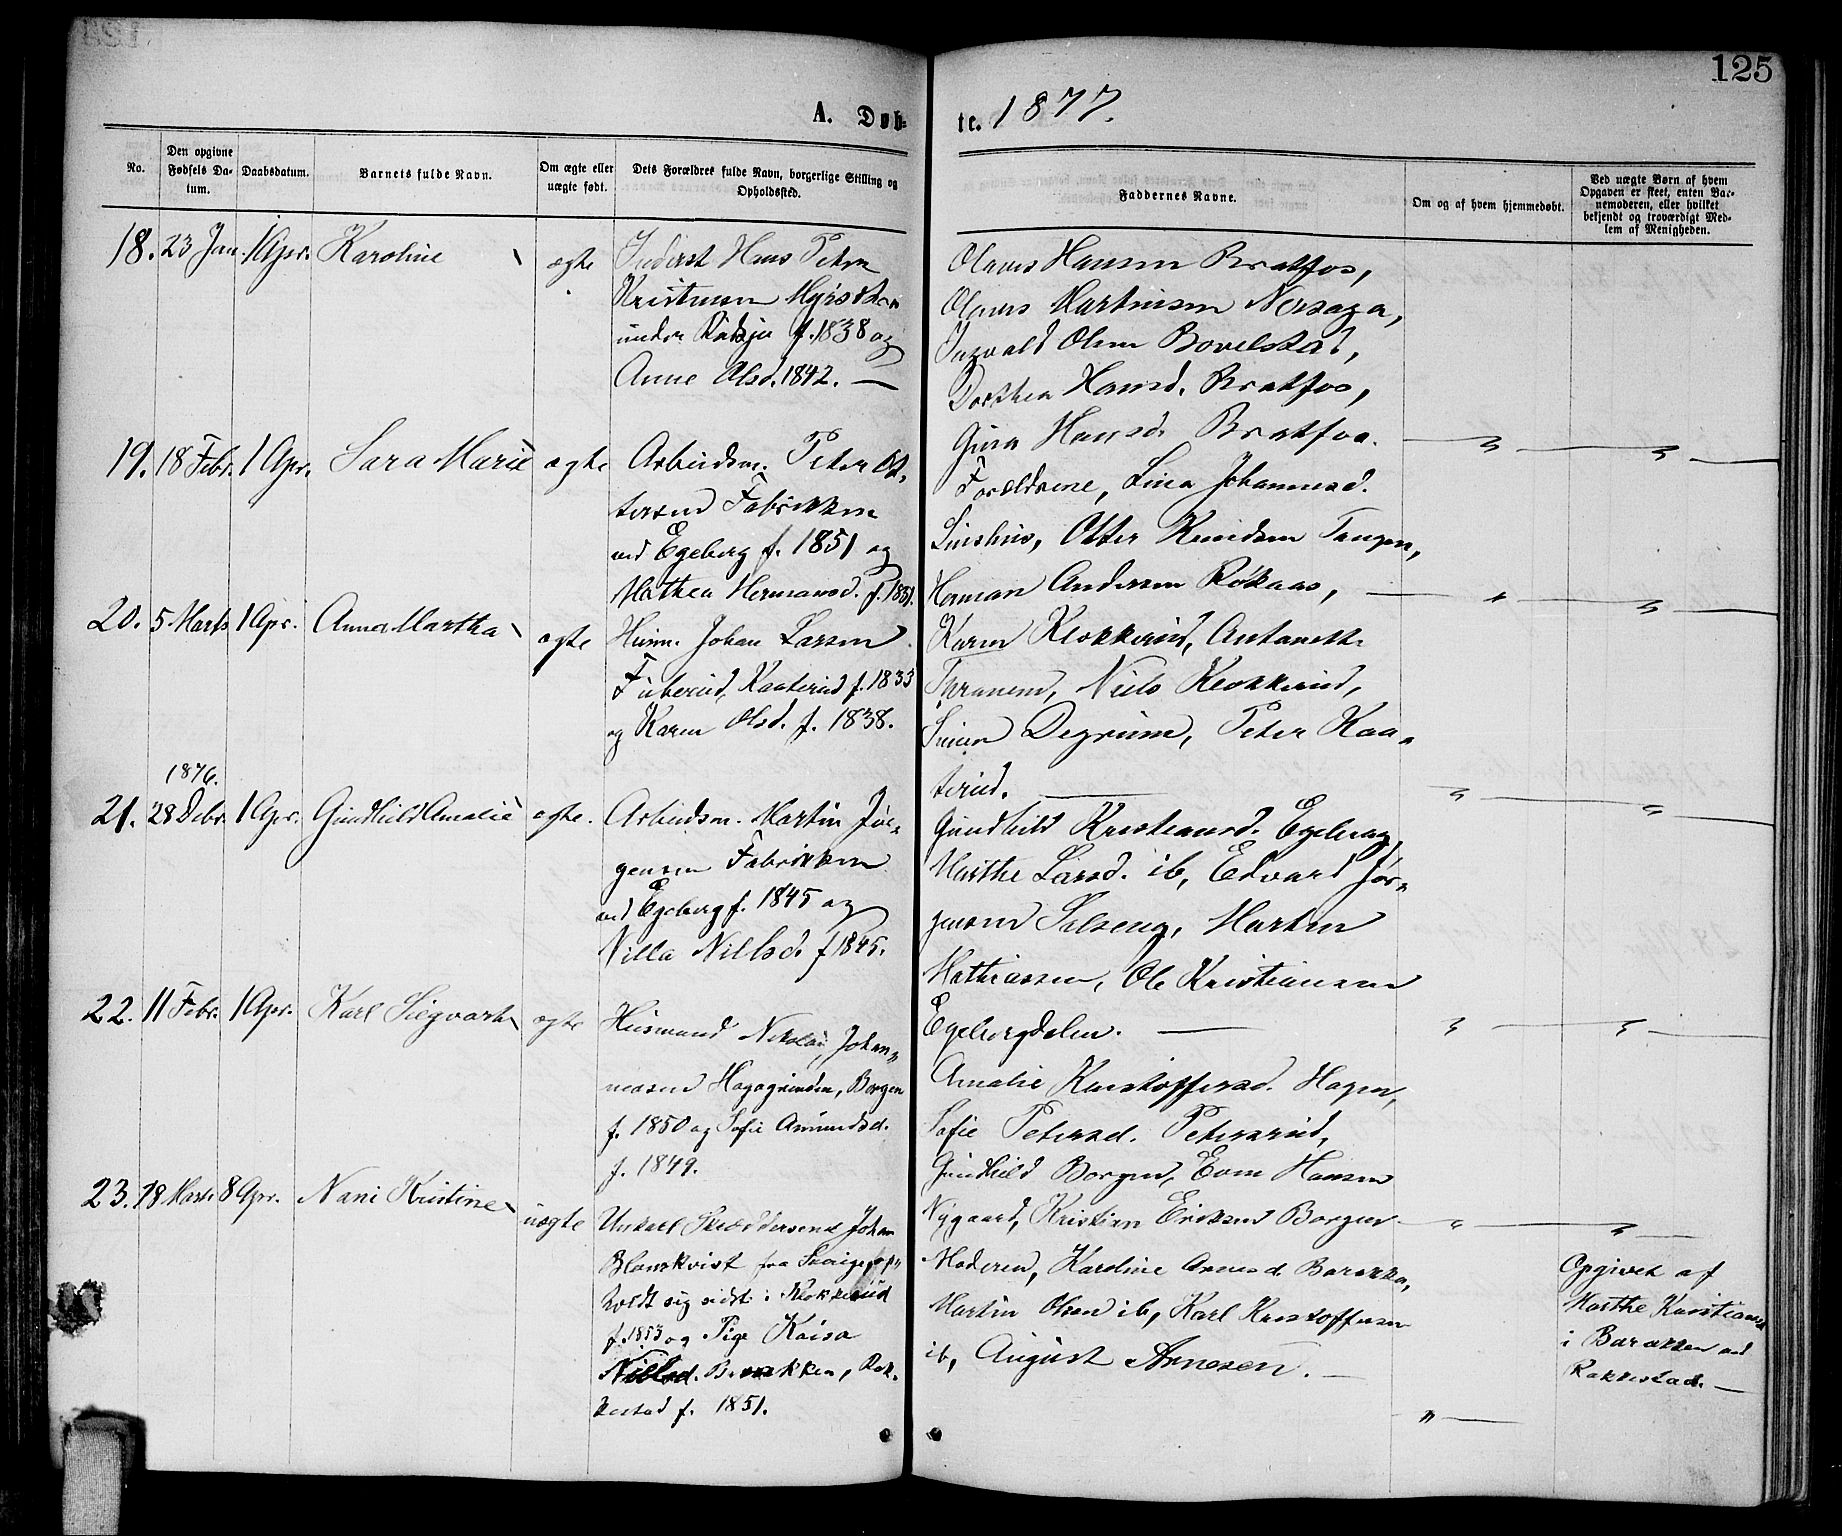 125
A. Døb-
te. 1877.
No.
Den opgivne Fødsels Da-tum.
Daabsdatum.
Barnets fulde Navn.
Om ægte eller uægte født.
Dets Forældres fulde Navn, borgerlige Stilling og Opholdssted.
Faddernes Navne.
Om og af hvem hjemmedøbt.
Ved uægte Børn af hvem Opgaven er skeet, enten Bar-nemoderen, eller hvilket bekjendt og troværdigt Med-lem af Menigheden.
18. 23 Jan. 1 Apr. Karoline ægte
Inderst Hans Peter
Kristiansen
under f. 1838 og
Anne Olsd. 1842. —
Olaves Hansen Bratfos,
Olaves Martinsen
Ingvald Olsen Bovelstad,
Dorthea Hansd. Bratfos,
Gina Hansd. Bratfos. — „ — „ —
19. 18 Febr. 1 Apr. Sara Marie ægte
Arbeidsm. Peter Ot-
tersen Fabrikken
ved Egeberg f. 1851 og
Mathea Hermansd. f. 1851.
Forældrene, Lina Johannesd.
Linshus, Otter Knudsen Tangen,
Herman Andersen Røkaas, — „ — „ —
20. 5 Marts 1 Apr. Anna Martha ægte
Husm. Johan Larsen
Kaaterud f. 1833
og Karen Olsd. f. 1838.
Karen Klokkerud, Antonette
Thranem, Niels Klokkerud,
Simen Degrum, Peter Kaa-
terud. — „ — „ —
1876.
21. 28 Debr. 1 Apr. Gundhild Amalie ægte.
Arbeidsm. Martin Jør-
gensen Fabrikken
ved Egeberg f. 1845 og
Nilla Nillsd. f 1845.
Gundhild Kristiansd. Egeberg,
Marthe Larsd. ib, Edvard Jør-
gensen Selseng, Martin
Mathiassen, Ole Kristiansen
Egebergdalen. — „ — „ —
22. 11 Febr. 1 Apr. Karl Sigvart ægte
Husmand Nikolai Johan-
nesen Hagagrinden, Borgen
f. 1850 og Sofie Amundsd.
f. 1849.
Amalie Kristoffersd. Hagen,
Sofie Petersd. Petersrud,
Gundhild Borgen, Even Hansen
Nygaard, Kristian Eriksen Borgen — „ — „ —
23. 18 Marts 8 Apr. Nani Kristine uægte
Ungkarl Skræddersvend Johan
Blomkvist fra Sverige, op-
holdt sig sidst i Klokkerud
f. 1853 og Pige Kaisa
Nillsd. Barakken, Rak-
kestad f. 1851.
Moderen, Karoline Arnesd. Barakka,
Martin Olsen ib, Karl Kristoffersen
ib, August Arnesen. —
„ —
Opgivet af
Marthe Kristiansd.
i Barakken ved
Rakkestad. —